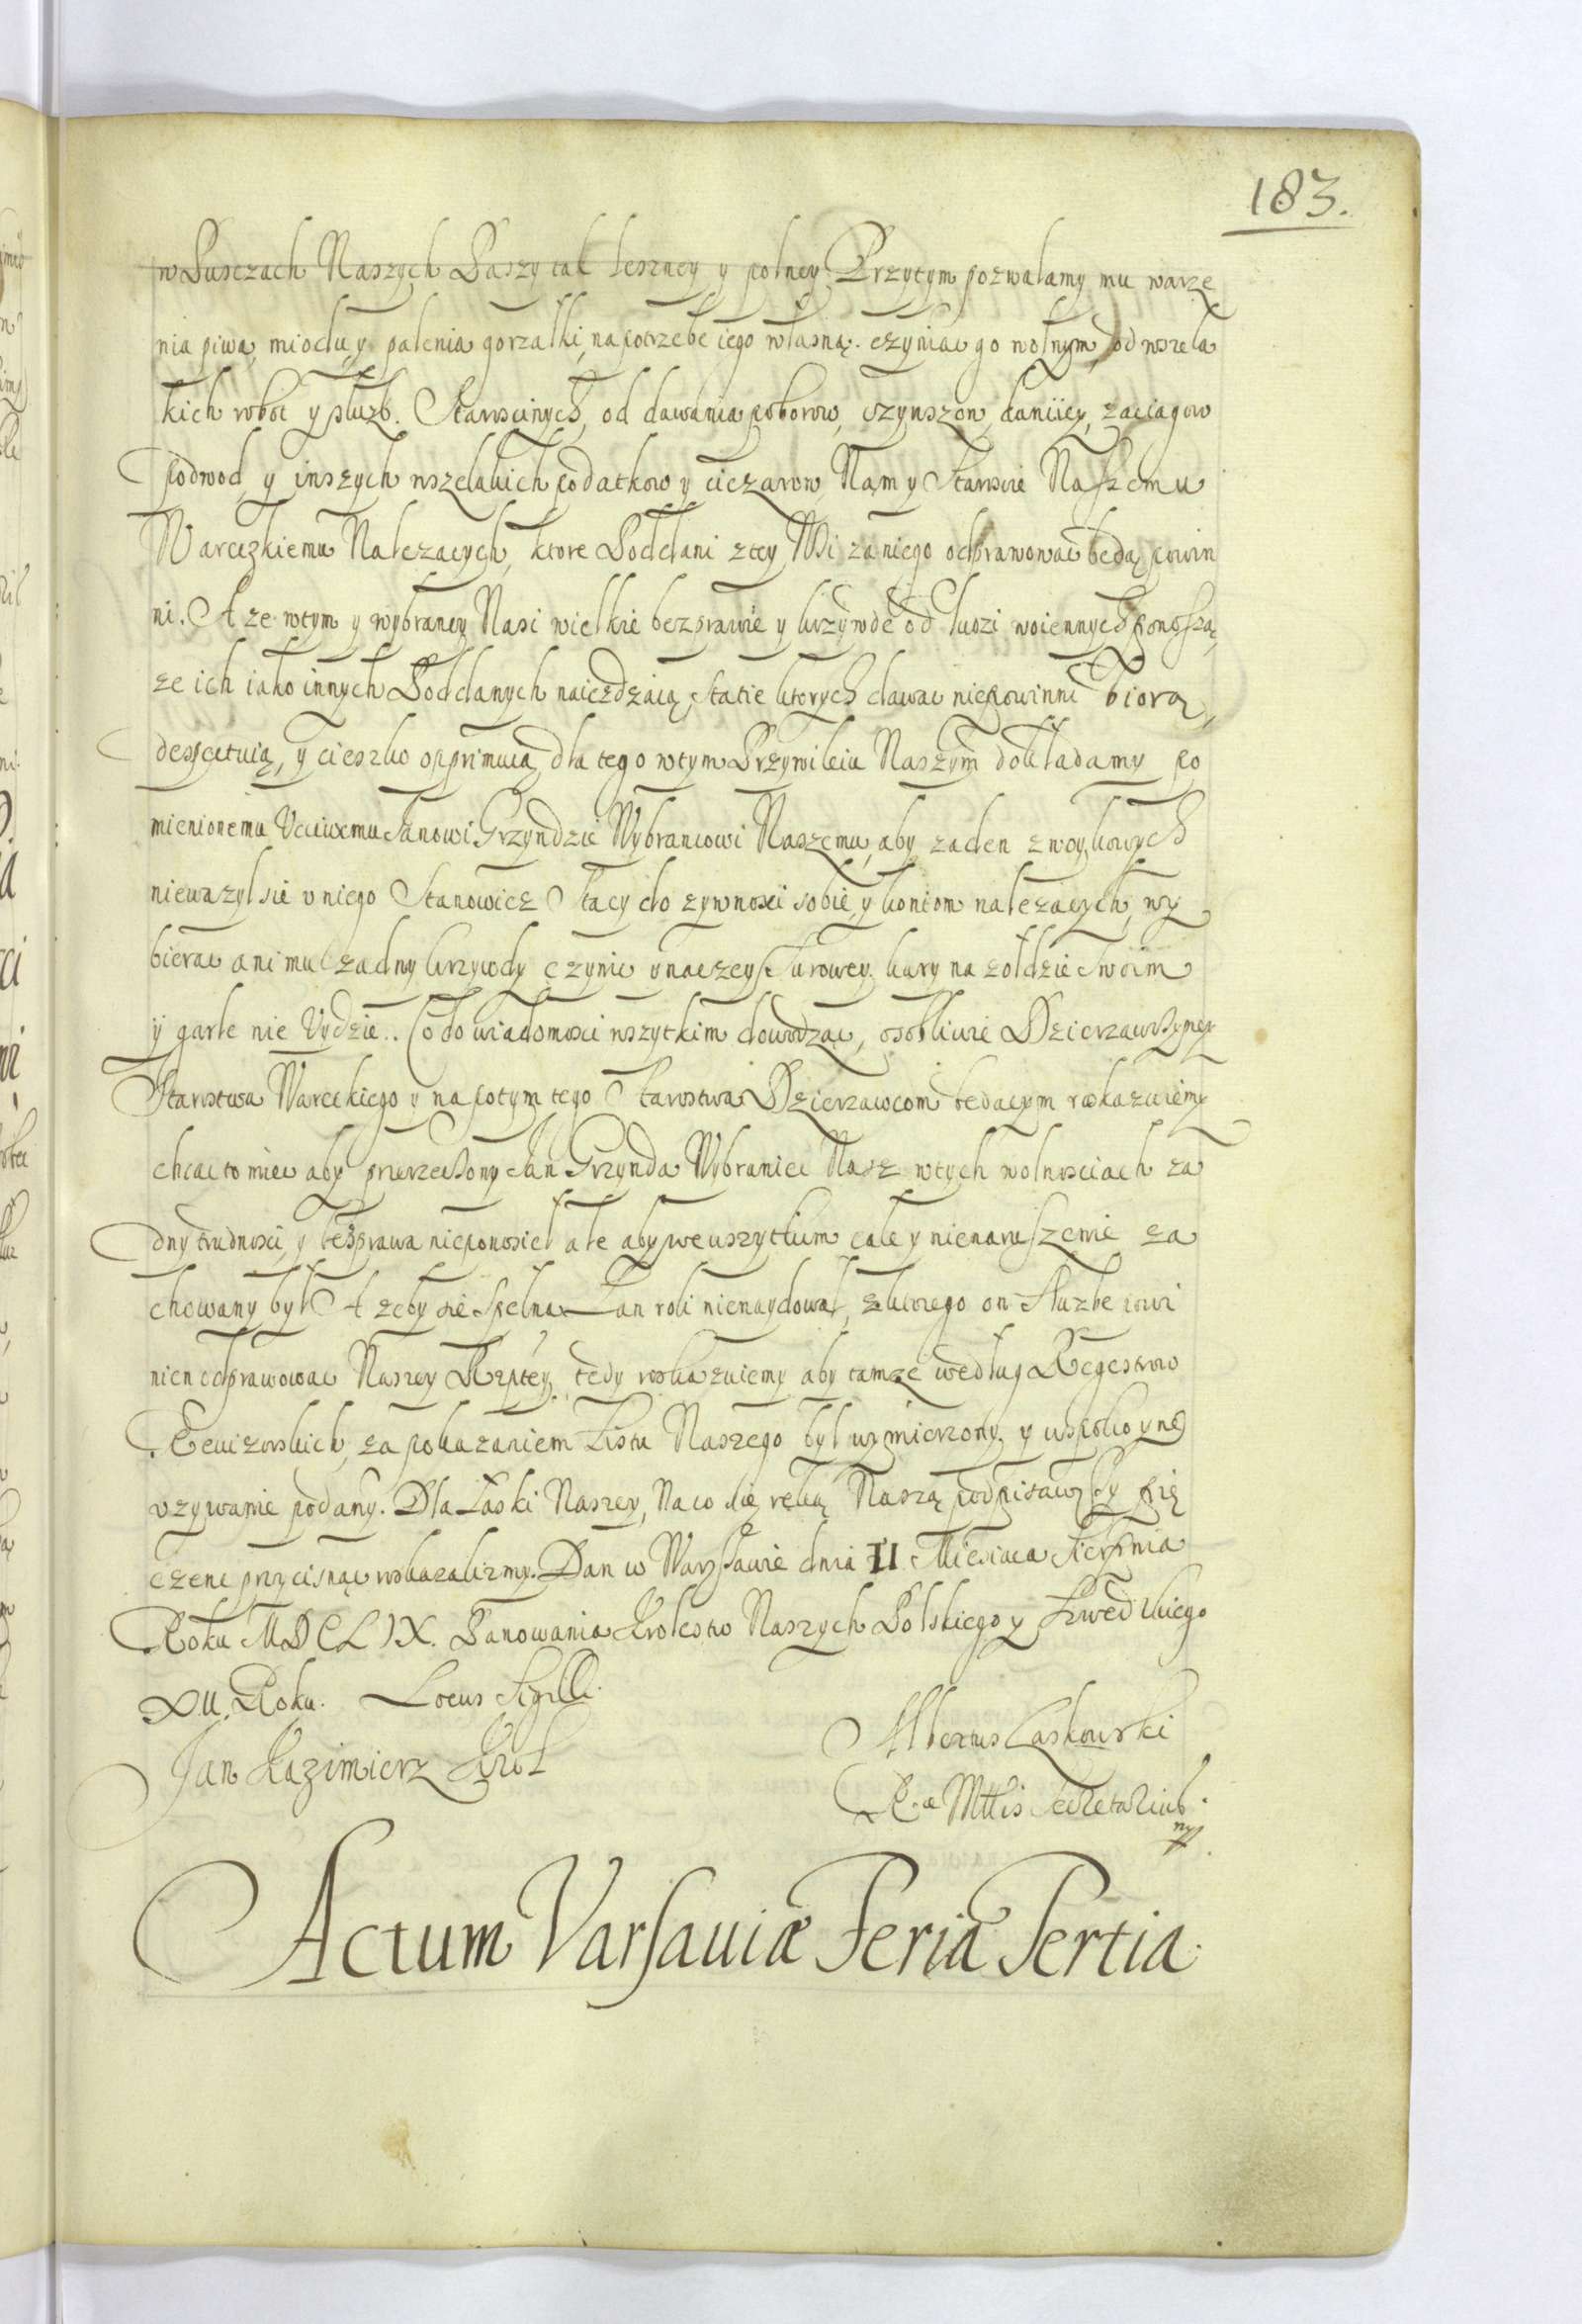 183.
w Pusczach Naszych Paszy tak leszney y polney Przytym pozwalamy mu warze
nia piwa, miodu, y palenia gorzałki, na potrzebe iego własną. czyniac go wolnym, od wszela
kich robot y słuzb. Starościnych, od dawania poborow, czynszow, daniiey, zaciągow
podwod, y inszych wszelakich podatkow y ciezarow Nam y Staroscie Naszemu
Wareczkiemu Nalezacych, ktore Poddani z tey Wsi za niego odprawowac bedą powin
ni. A ze w tym y wybrancy Nasi wielkie bezprawie y krzywde od ludzi woiennych ponoszą,
ze ich iako innych Poddanych naiezdzaią, Statie ktorych dawac niepowinni biorą,
despectuią, y cieszko opprimuią, dla tego w tym Przywileiu Naszym dokładamy po
mienionemu Vcciwemu Janowi Grzyndzie Wybrancowi Naszemu, aby zaden z woyskowych
niewazył sie v niego Stanowicz Stacy do zywnosci sobie, y koniom nalezacych, wy
bierac ani mu zadny krzywdy czynic ynaczey Surowey kary na zołdzie Swoim
y garle nie Vydzie.. Co do wiadomosci wszytkim dowodząc, osobliwie Dzierzawczyney
Starostwa Wareckiego y na potym tego Starostwa Dzierzawcom bedacym roskazuiemy
chcac to miec aby przerzeczony Jan Grzynda Wybraniec Nasz w tych wolnosciach za
dny trudnosci, y bezprawa nieponosieł ale aby we wszytkim cale y nienaruszenie za
chowany był A zeby sie Spełna Łan roli nienaydował, z ktorego on Słuzbe powi
nien odprawowac Naszey Rzptey, tedy roskazuiemy aby tamze według Regestrow
Rewizorskich, za pokazaniem Listu Naszego był wymierzony, y w spokoyne
vzywanie podany. Dla Łaski Naszey, Na co się ręką Naszą podpisawszy pię
czenc przycisnąc roskazalizmy. Dan w Warszawie dnia II Miesiaca Sierpnia
Roku MDCLIX. Panowania Krolestw Naszych Polskiego y Szwedzkiego
XII. Roku. Locus Sigilli.
Jan Kazimierz Krol
Albertus Laskowski
R.æ Mttis Secretarius
mp.
Actum Varsaviæ Feria Tertia